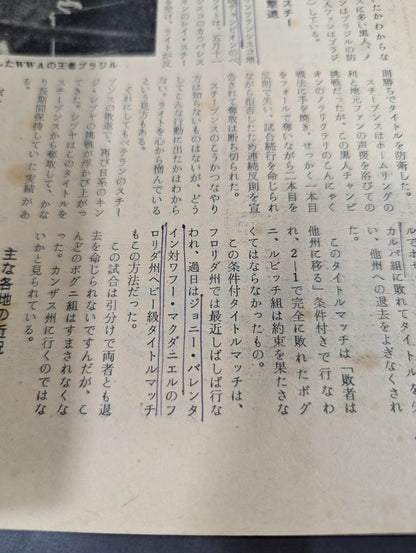 たWWAの王者ブラジル
則勝ちでタイトルを防衛した。
スチーブンスはホームリングの
利と地元ファンの声援を浴びての
挑戦だったが、この黒人チャンピ
オンのノラリクラリのこんにゃく
戦法に手を焼き、せっかく一本目を
フォールで奪いながら二本目を
反則で失い、試合続行を命じられ
ながら拒否したため連続反則を宣
告されて奪取は断ち切られた。
スチーブンスのこうかつなやり
方は知らないものはないが、どう
してこんな行動に出たかはわから
ない。ライトを心から憎んでいる
という見方もある。
それにしてもベテランのスチー
ブンスの敗退で、再び日系のキン
ジ・シブヤの挑戦が浮かび上がっ
てきた。シブヤはこのタイトルを
スチーブンスから奪取して、かな
り長期間保持していた実績があ
カルバ組に敗れてタイトルを
い、他州への退去をよぎなくされ
た。
このタイトルマッチは「敗者は
他州に移る」条件付きで行なわ
れ、2―1で完全に敗れたボグ
ニ、ルビッチ組は約束を果たさな
くてはならなかったもの。
この条件付きタイトルマッチは、
フロリダ州では最近しばしば行な
われ、過日はジョニー・バレンタ
イン対ワフー・マクダニエルのフ
ロリダ州ヘビー級タイトルマッチ
もこの方法だった。
この試合は引分で両者とも退
去を命じられないですんだが、こ
んどのボグニ組はすまされなくな
った。カンザス州に行くのではな
いかと見られている。
主な各地の近況